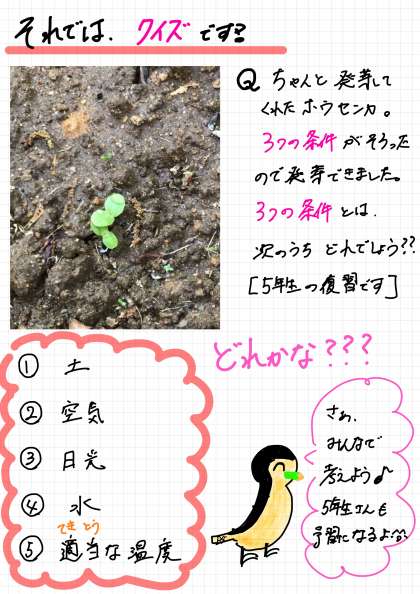 それでは、クイズです?
Q ちゃんと発芽して
くれたホウセンカ。
3つの条件がそろった
ので発芽できました。
3つの条件とは、
次のうちどれでしょう??
[5年生の復習です]
どれかな???
① 土
② 空気
③ 日光
④ 水
てきとう
⑤ 適当な温度
さぁ、
みんなで
考えよう♪
5年生さんも
予習になるよ